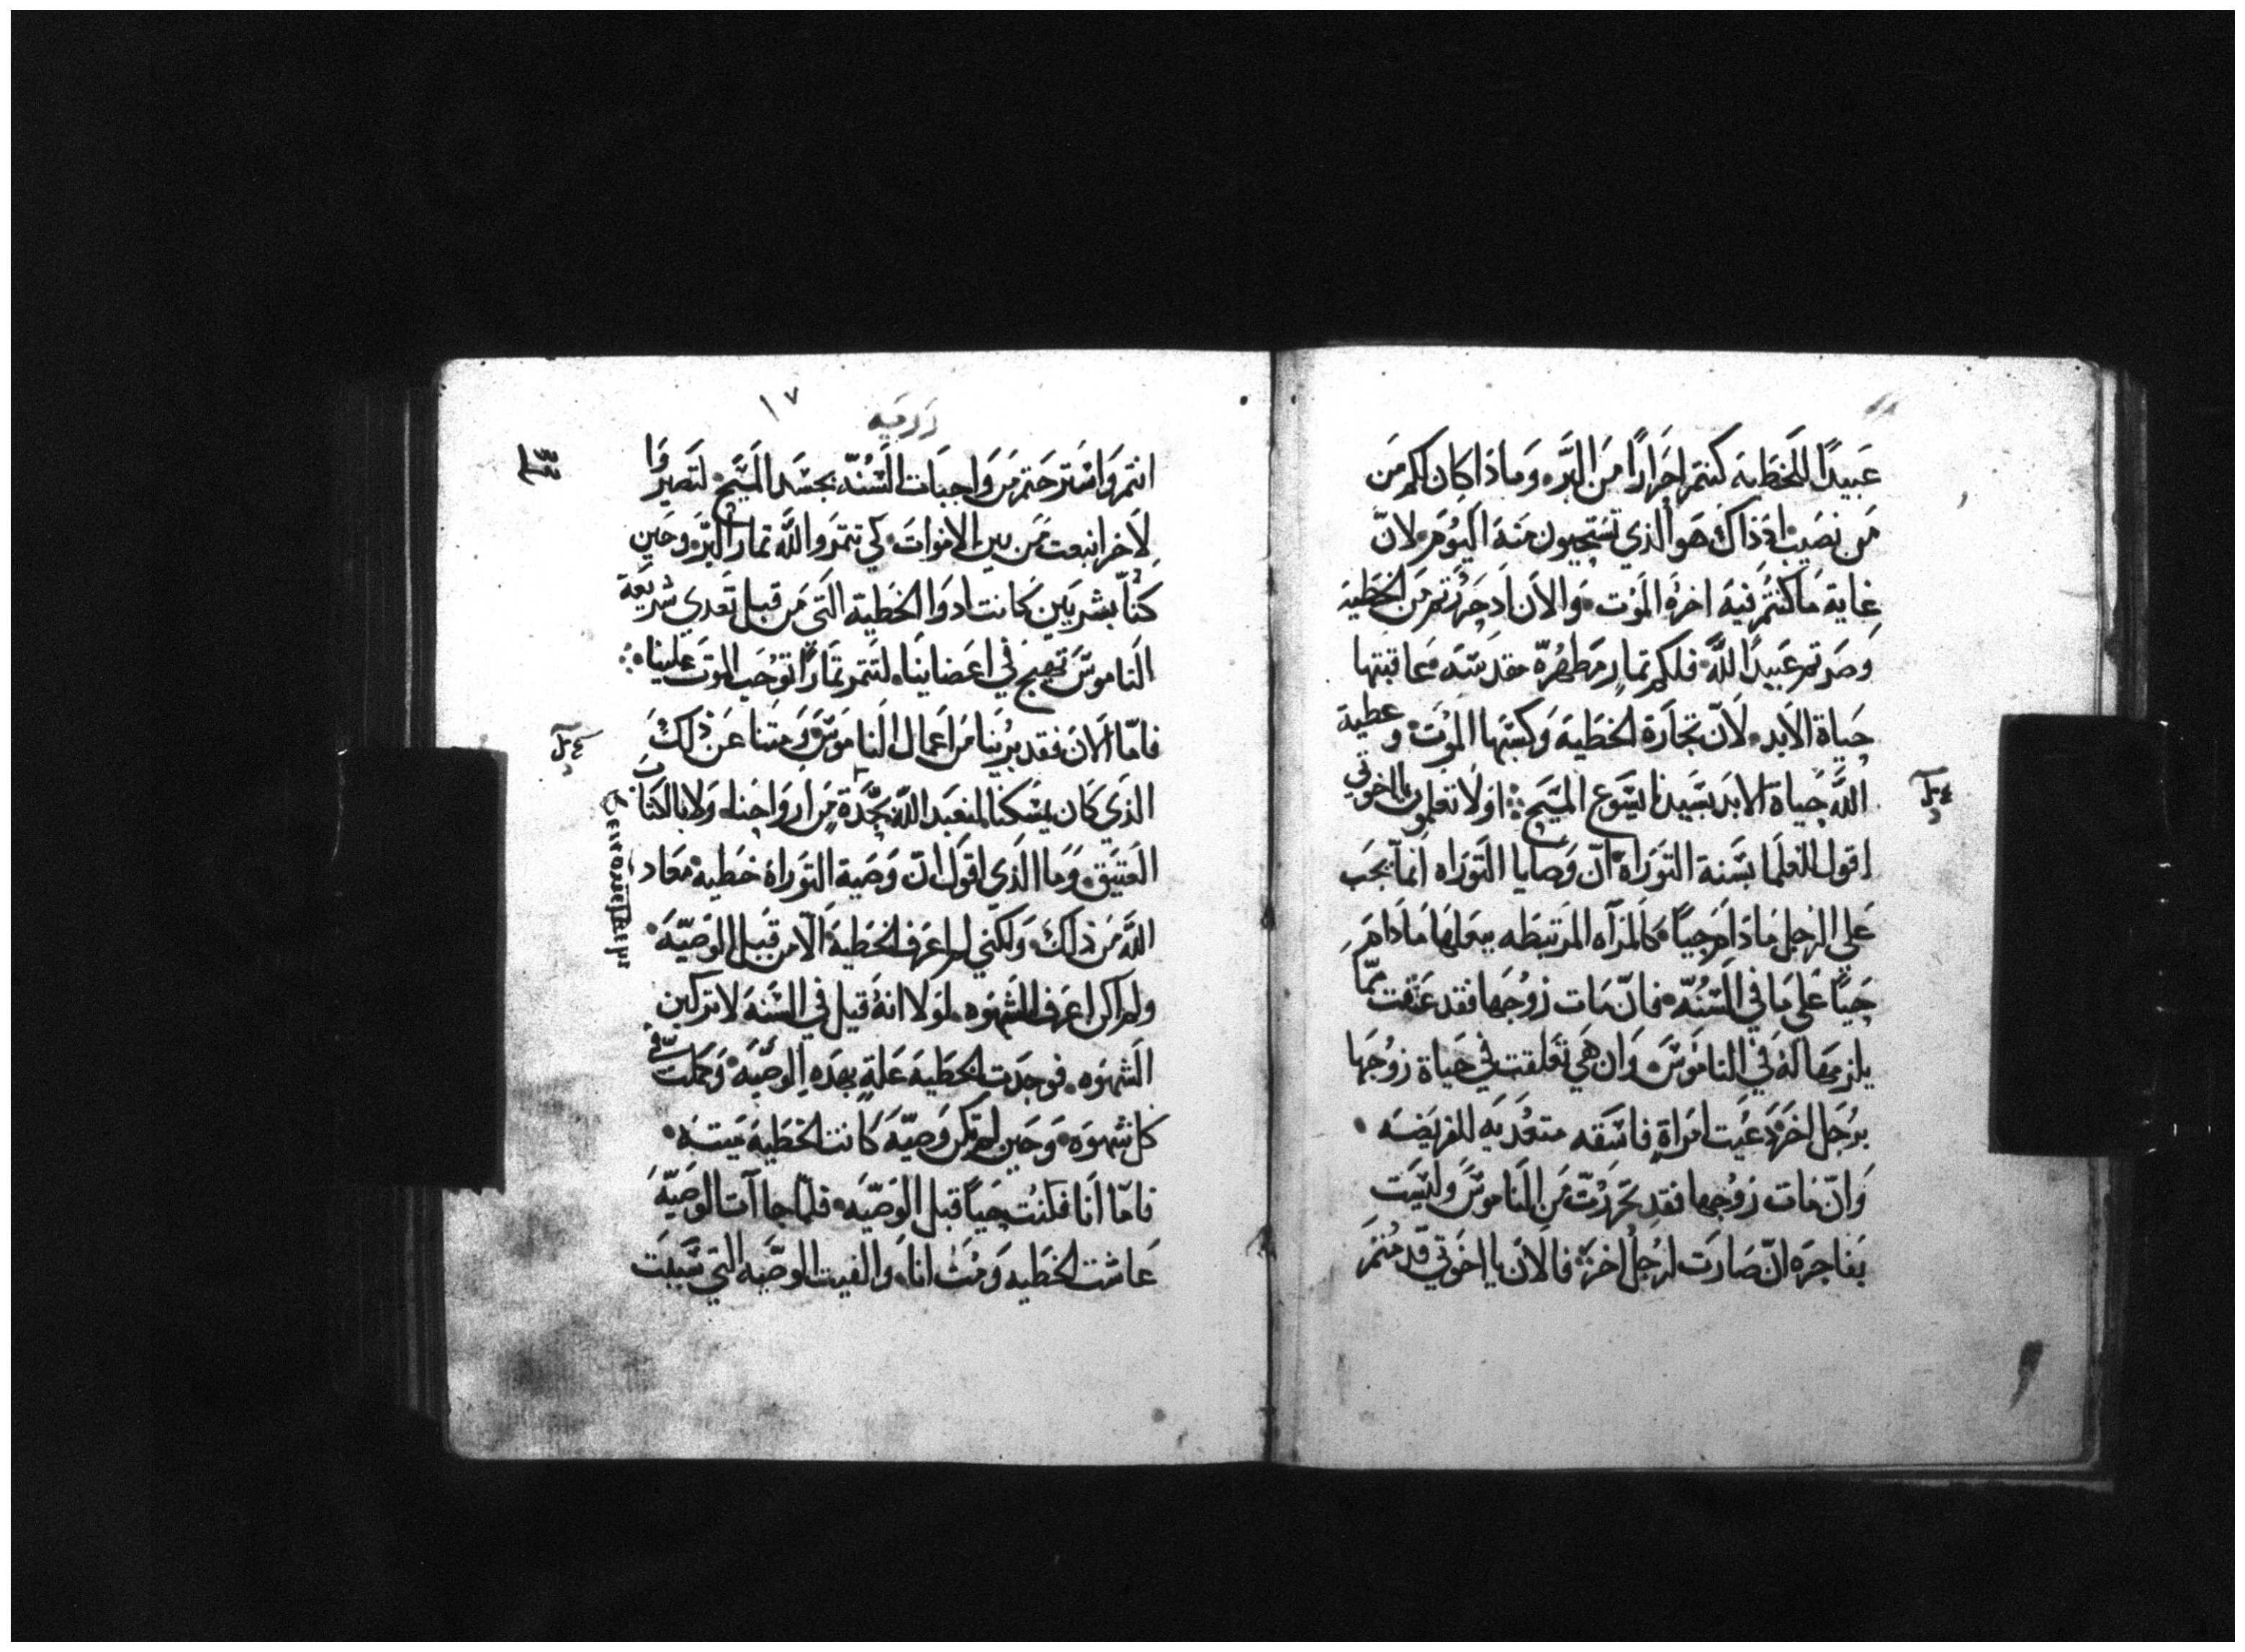 عبيدًا للخطية كنتم احرارًا من البر وماذا كان لكم من
من نصيب اذ ذاك هو الذي تستحيون منه اليوم لان
غاية ما كنتم فيه اخره الموت والان اذ حررتم من الخطية
وصرتم عبيدًا لله فلكم ثمار مطهرة مقدسه عاقبتها
حياة الابد لان تجارة الخطية وكسبها الموت وعطية
الله حياة الابد بسيدنا يسوع المسيح اولا تعلمون يا اخوتي
اقول للعلما بسنة التوراة ان وصايا التوراه انما يجب
علي الرجل مادام حيًا كالمرآه المرتبطه ببعلها مادام
حيًا علي ما في السنه فان مات زوجها فقد عتقت مما
يلزمها له في الناموس وان هي تعلقت في حياة زوجها
برجل اخر دعيت امراة فاسقه متعديه للفريضه
وان مات زوجها فقد تحررت من الناموس وليست
بفاجره ان صارت لرجل اخر فالان يا اخوتي قد متم
١٧
انتم واسترحتم من واجبات السنه بجسد المسيح لتصيروا
لاخر انبعث من بين الاموات كي تثمروا لله ثمار البر وحين
كنا بشريين كانت ادوا الخطية التي من قبل تعدي شريعة
الناموس تهيج في اعضاينا لتثمر ثمارًا توجب الموت علينا
فاما الان فقد برينا من اعمال الناموس ومتنا عن ذلك
الذي كان يمسكنا لنعبد الله بجدة من ارواحنا ولا بالكتاب
العتيق وما الذي اقول ان وصية التوراة خطيه معاد
الله من ذلك ولكني لم اعرف الخطية الا من قبل الوصيه
ولم اكن اعرف الشهوه لولا انه قيل في السنه لا تركبن
الشهوه فوجدت الخطية علة بهذه الوصيه وكملت في
كل شهوه وحين لم تكن وصيه كانت الخطيه ميته
فاما انا فكنت حيًا قبل الوصيه فلما جاآت الوصيه
عاشت الخطيه ومت انا والفيت الوصيه التي سببت